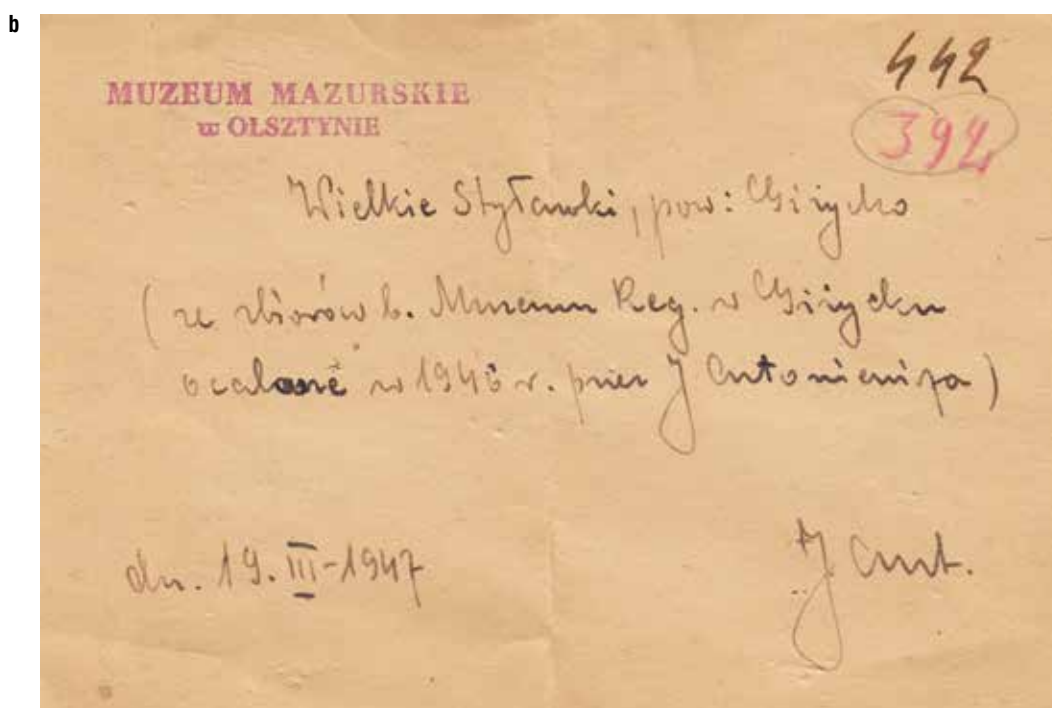 b
MUZEUM MAZURSKIE
w OLSZTYNIE
442
392
Wielkie Styławki, pow: Giżycko
(ze zbiorów b. Muzeum Reg. w Giżycku
ocalone w 1946 r. przez J Antoniewicza)
dn. 19. III-1947
J Ant.